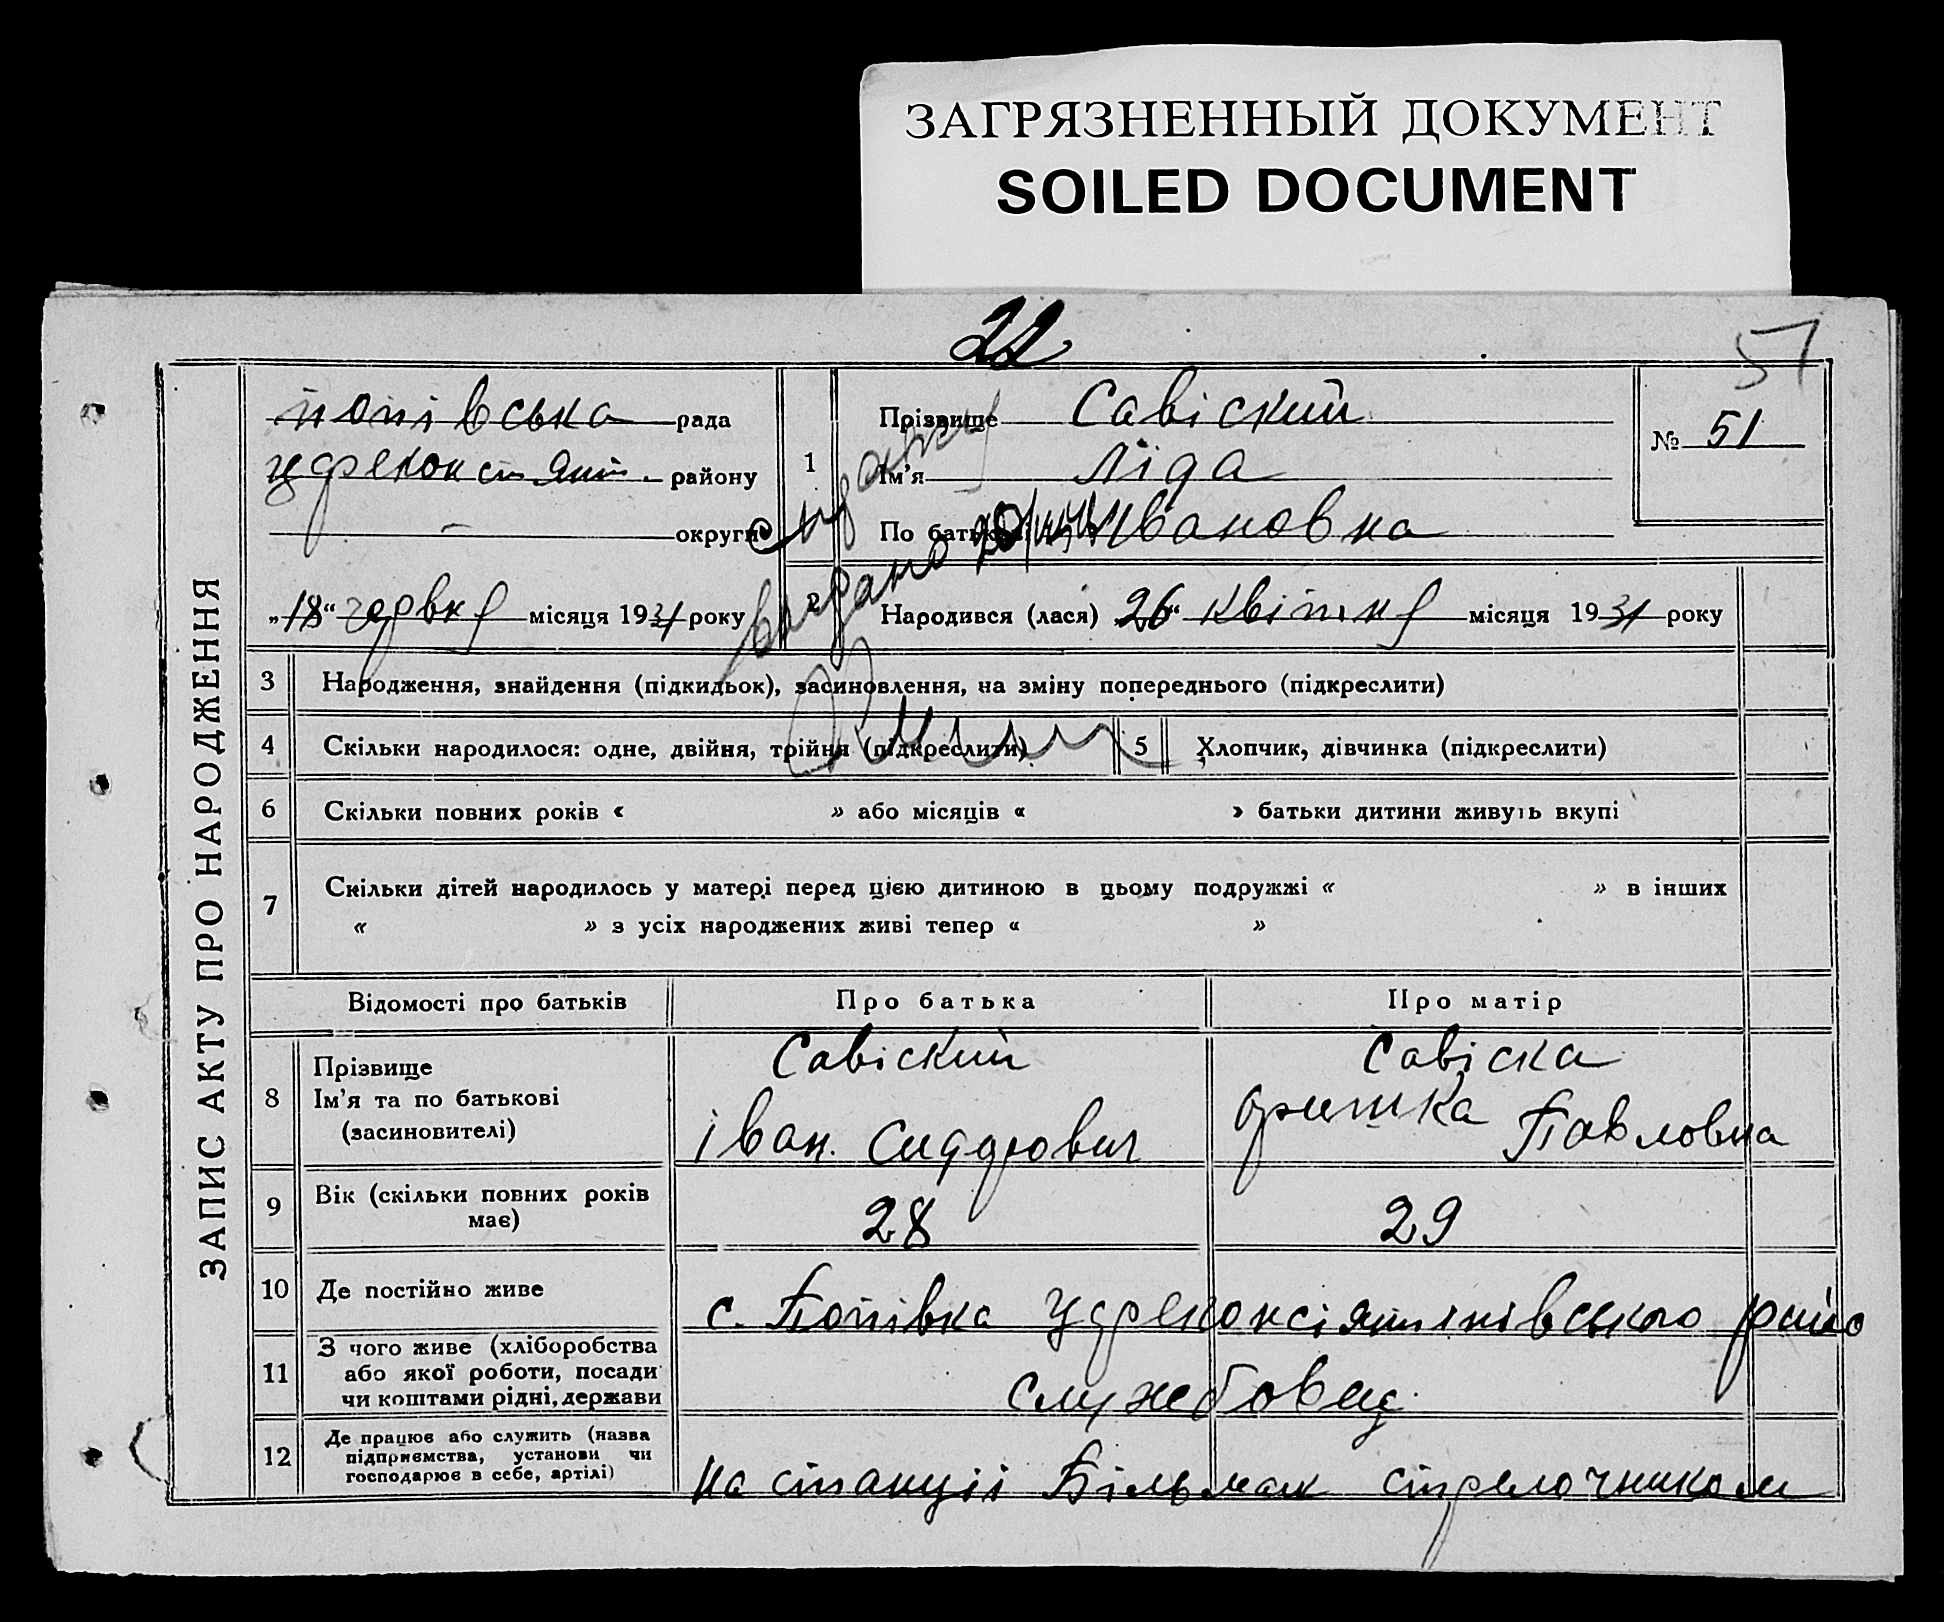 ЗАГРЯЗНЕННЫЙ ДОКУМЕНТ
SOILED DOCUMENT
22
51
ЗАПИС АКТУ ПРО НАРОДЖЕННЯ
попівська рада
району
округи
„18“ червня місяця 1931 року
1
Прізвище Савіский
Ім’я Ліда
По батькові Ивановна
№ 51
2
Народився (лася) „26“ квітня місяця 1931 року
видано
3 Народження, знайдення (підкидьок), засиновлення, на зміну попереднього (підкреслити)
4 Скільки народилося: одне, двійня, трійня (підкреслити)
5 Хлопчик, дівчинка (підкреслити)
6 Скільки повних років « » або місяців « » батьки дитини живуть вкупі
7 Скільки дітей народилось у матері перед цією дитиною в цьому подружжі « » в інших
« » з усіх народжених живі тепер « »
Відомості про батьків Про батька Про матір
8 Прізвище
Ім’я та по батькові
(засиновителі)
Савіский
Іван. Сидорович
Савіска
Оришка Павловна
9 Вік (скільки повних років
має)
28 29
10 Де постійно живе
с. Попівка Царекон райо
11 З чого живе (хліборобства
або якої роботи, посади
чи коштами рідні, держави
службовец
12 Де працює або служить (назва
підприємства, установи чи
господарює в себе, артілі)
На станції Більмак стрелочником